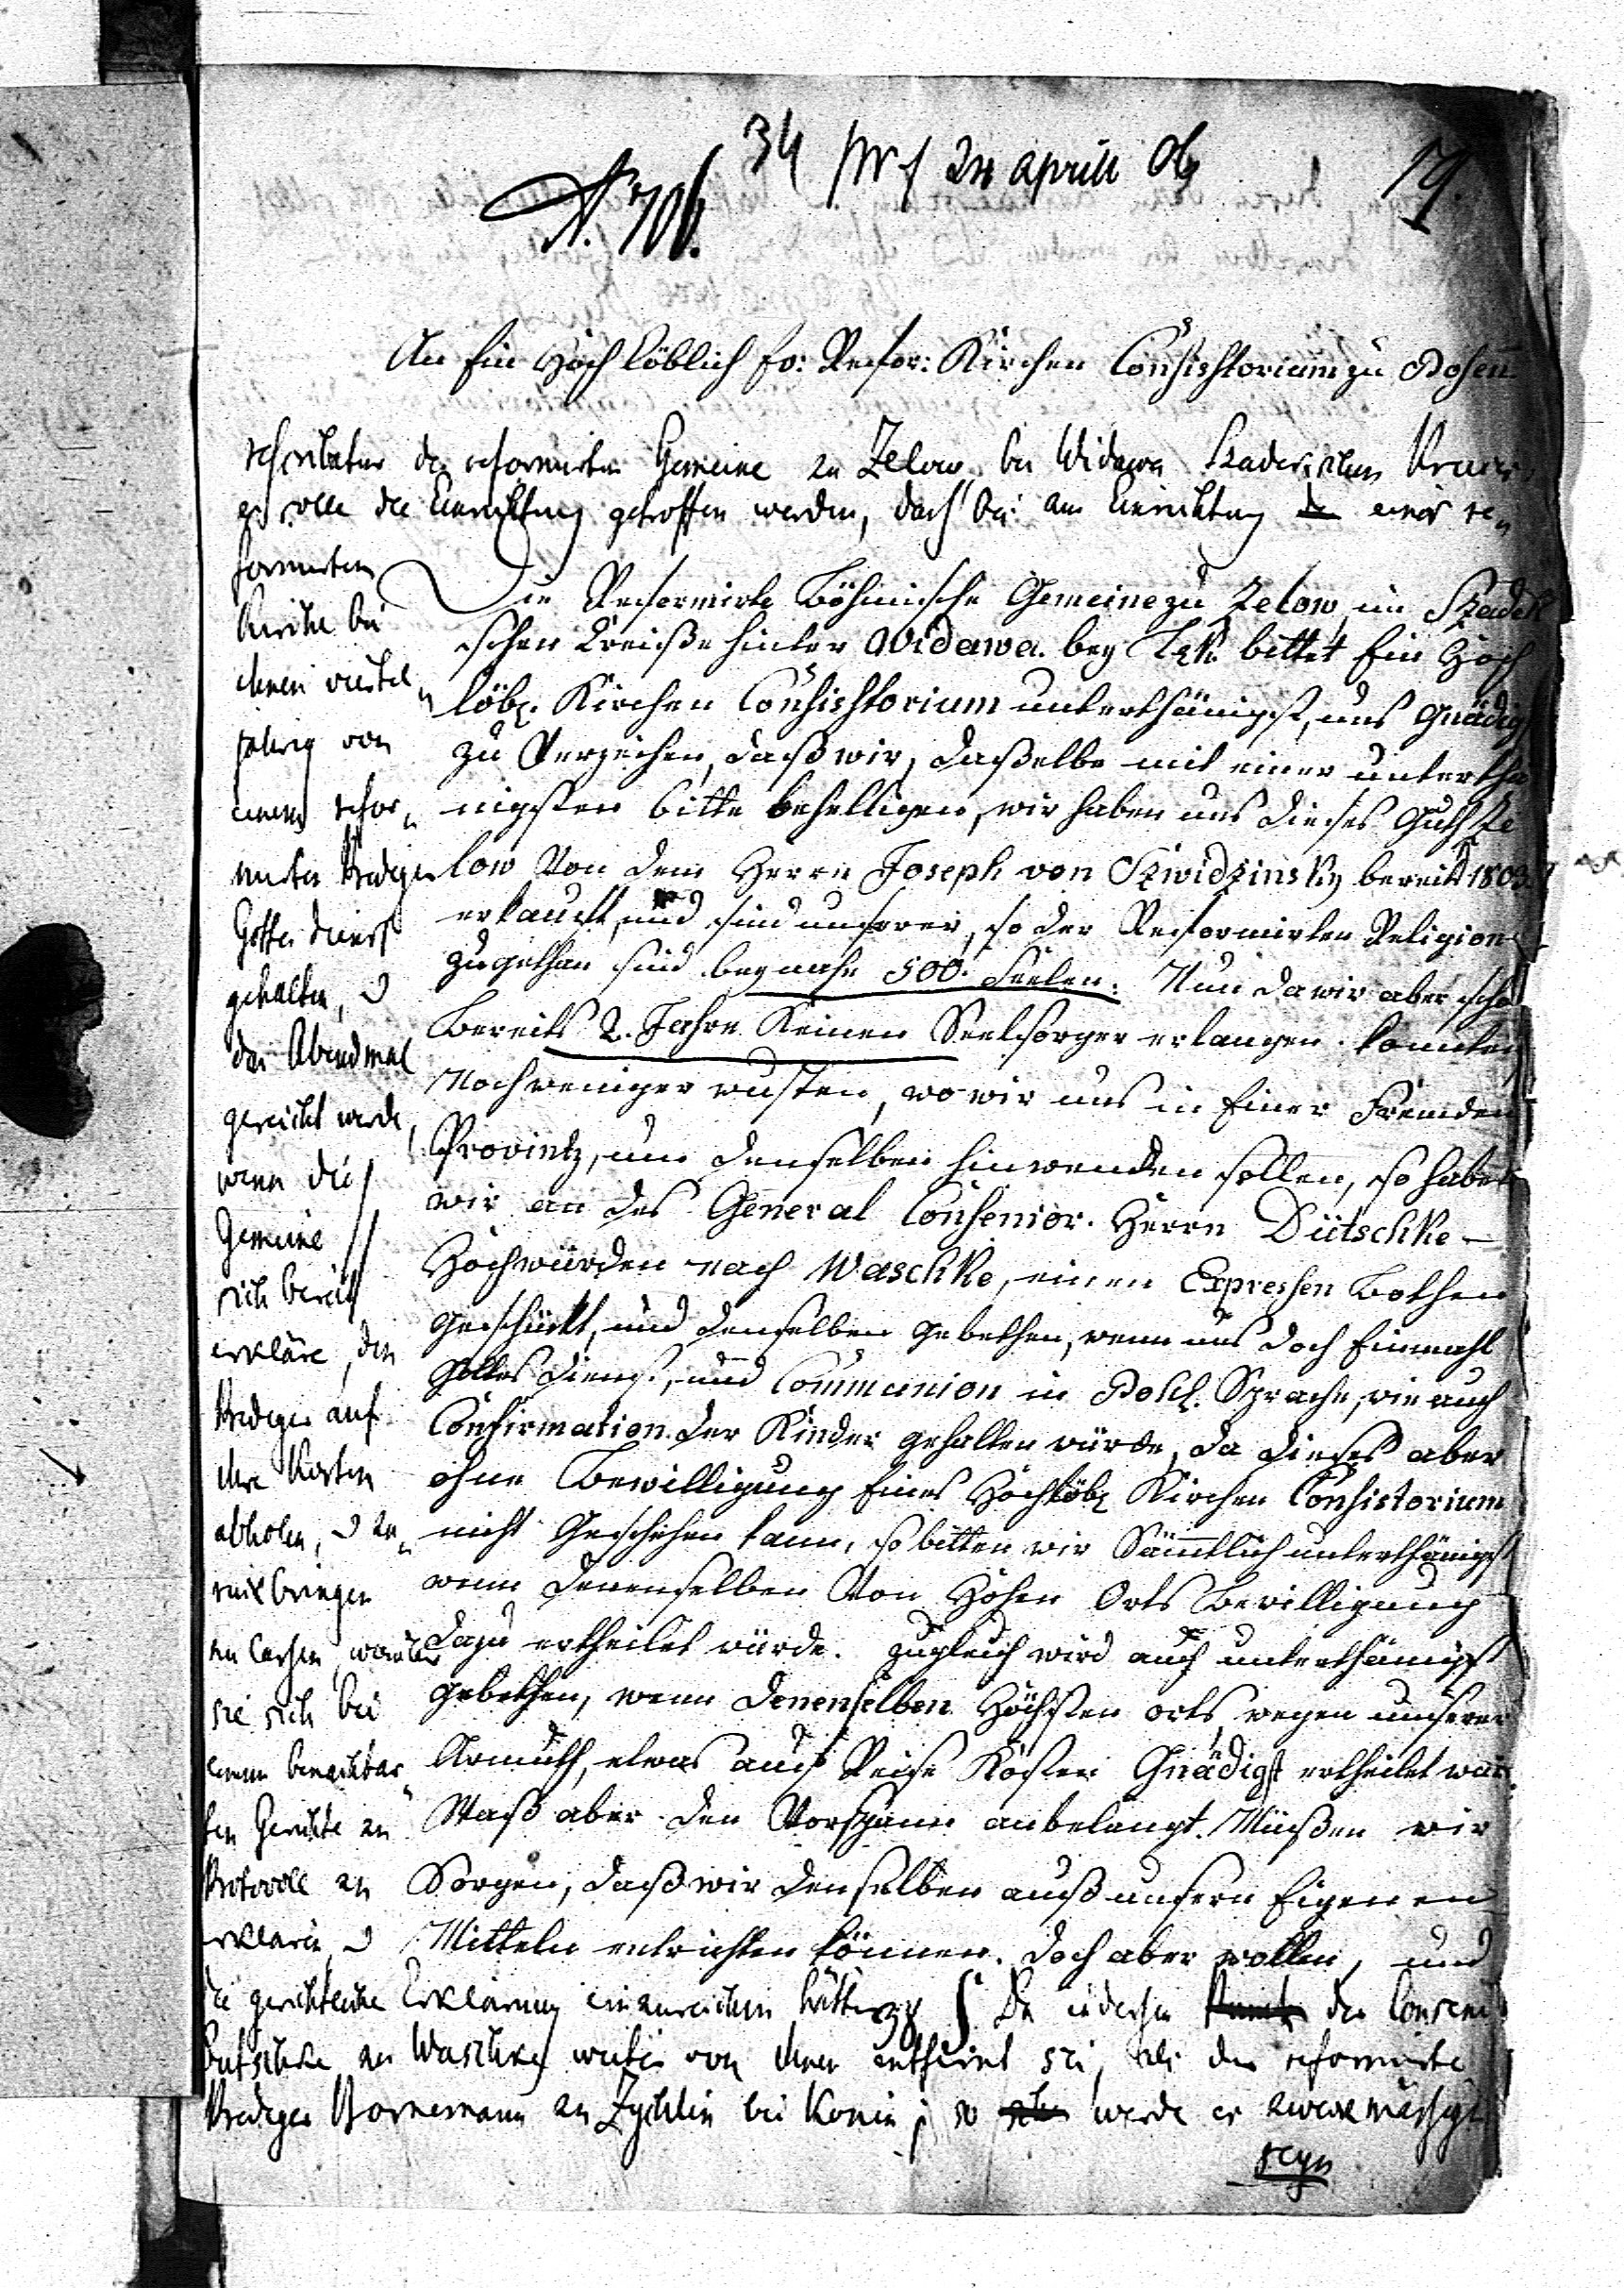 34 pr f 24 aprill 06
19.
N. 706.
An Ein Hoch löblich Ev: Refor: Kirchen Consishtorium zu Posen
rescribatur der reformirten Gemeine zu Zelow, bei Widawa Szadekschen Kreises
es solle die Einrichtung getroffen werden, dass bei Einrichtung einer re„
formirten
Kirche bei
ihnen viertel„
jahrig von
einem refor„
mirten Prediger
Gottes dienst
gehalten, u
das Abendmal
gereicht werde,
wenn die
Gemeine
sich bereit
erkläre, den
Prediger auf
ihre Kosten
abholen, u zu„
rück bringen
zu lassen, worüber
sie sich bei
einem benachbar„
ten Gerichte zu
Protocoll zu
erklären, u
die gerichtliche Erklärung einzureichen hätten Da indessen der Consenior
Dütschke zu Waschke weiter von ihnen entfernt sei, als der reformirte
Prediger Bornemann zu Zychlin bei Konin; so werde es zweckmässiger
seyn
Die Reformirte Böhmische Gemeine zu Zelow, im Szadek
schen Kreiße hinter Widawa. bey Lask bittet Ein Hoch
löbl. Kirchen Consishtorium unterthänigst, uns Gnädigst
zu Verzeihen, daß wir, daßelbe mit einer unterthä
nigsten bitte behelligen, wir haben uns dieses Guth Ze
low Von dem Herrn Joseph von Szwidzinsky bereits 1803.
erkauft, und sind unserer, so der Reformirten Religion
zugethan sind beynahe 500. Seelen. Nun da wir aber schon
Bereits 2. Jahre Keinen Seelsorger erlangen konnten
Noch weniger wusten, wo wir uns in Einer Fremden
Provintz, um denselben hinwenden sollen, so haben
wir an des General Consenior. Herrn Dütschke –
Hochwürden nach Waschke, einen Expressen Bothen
Geschückt, und denselben Gebethen, wenn uns doch Einmahl
Gottes dienst, und Communion in Pohl. Sprache, wie auch
Confirmation der Kinder gehalten würde, da dieses aber
ohne Bewilligung Eines Hochlöbl Kirchen Consistorium
nicht Geschehen kann, so bitten wir Sämtlich unterthänigst
wenn denenselben Von Hohen Orts Bewilligung
dazu ertheilet würde. zugleich wird auch unterthänigst
gebethen, wenn denenselben Höchsten orts, wegen unserer
Armuth, etwas auch Reise Kosten Gnädigst ertheilet wär.
Waß aber den Vorspann anbelangt. Müßen wir
Sorgen, daß wir denselben auß unsern Eigenen
Mitteln entrichten können. doch aber wollen, und